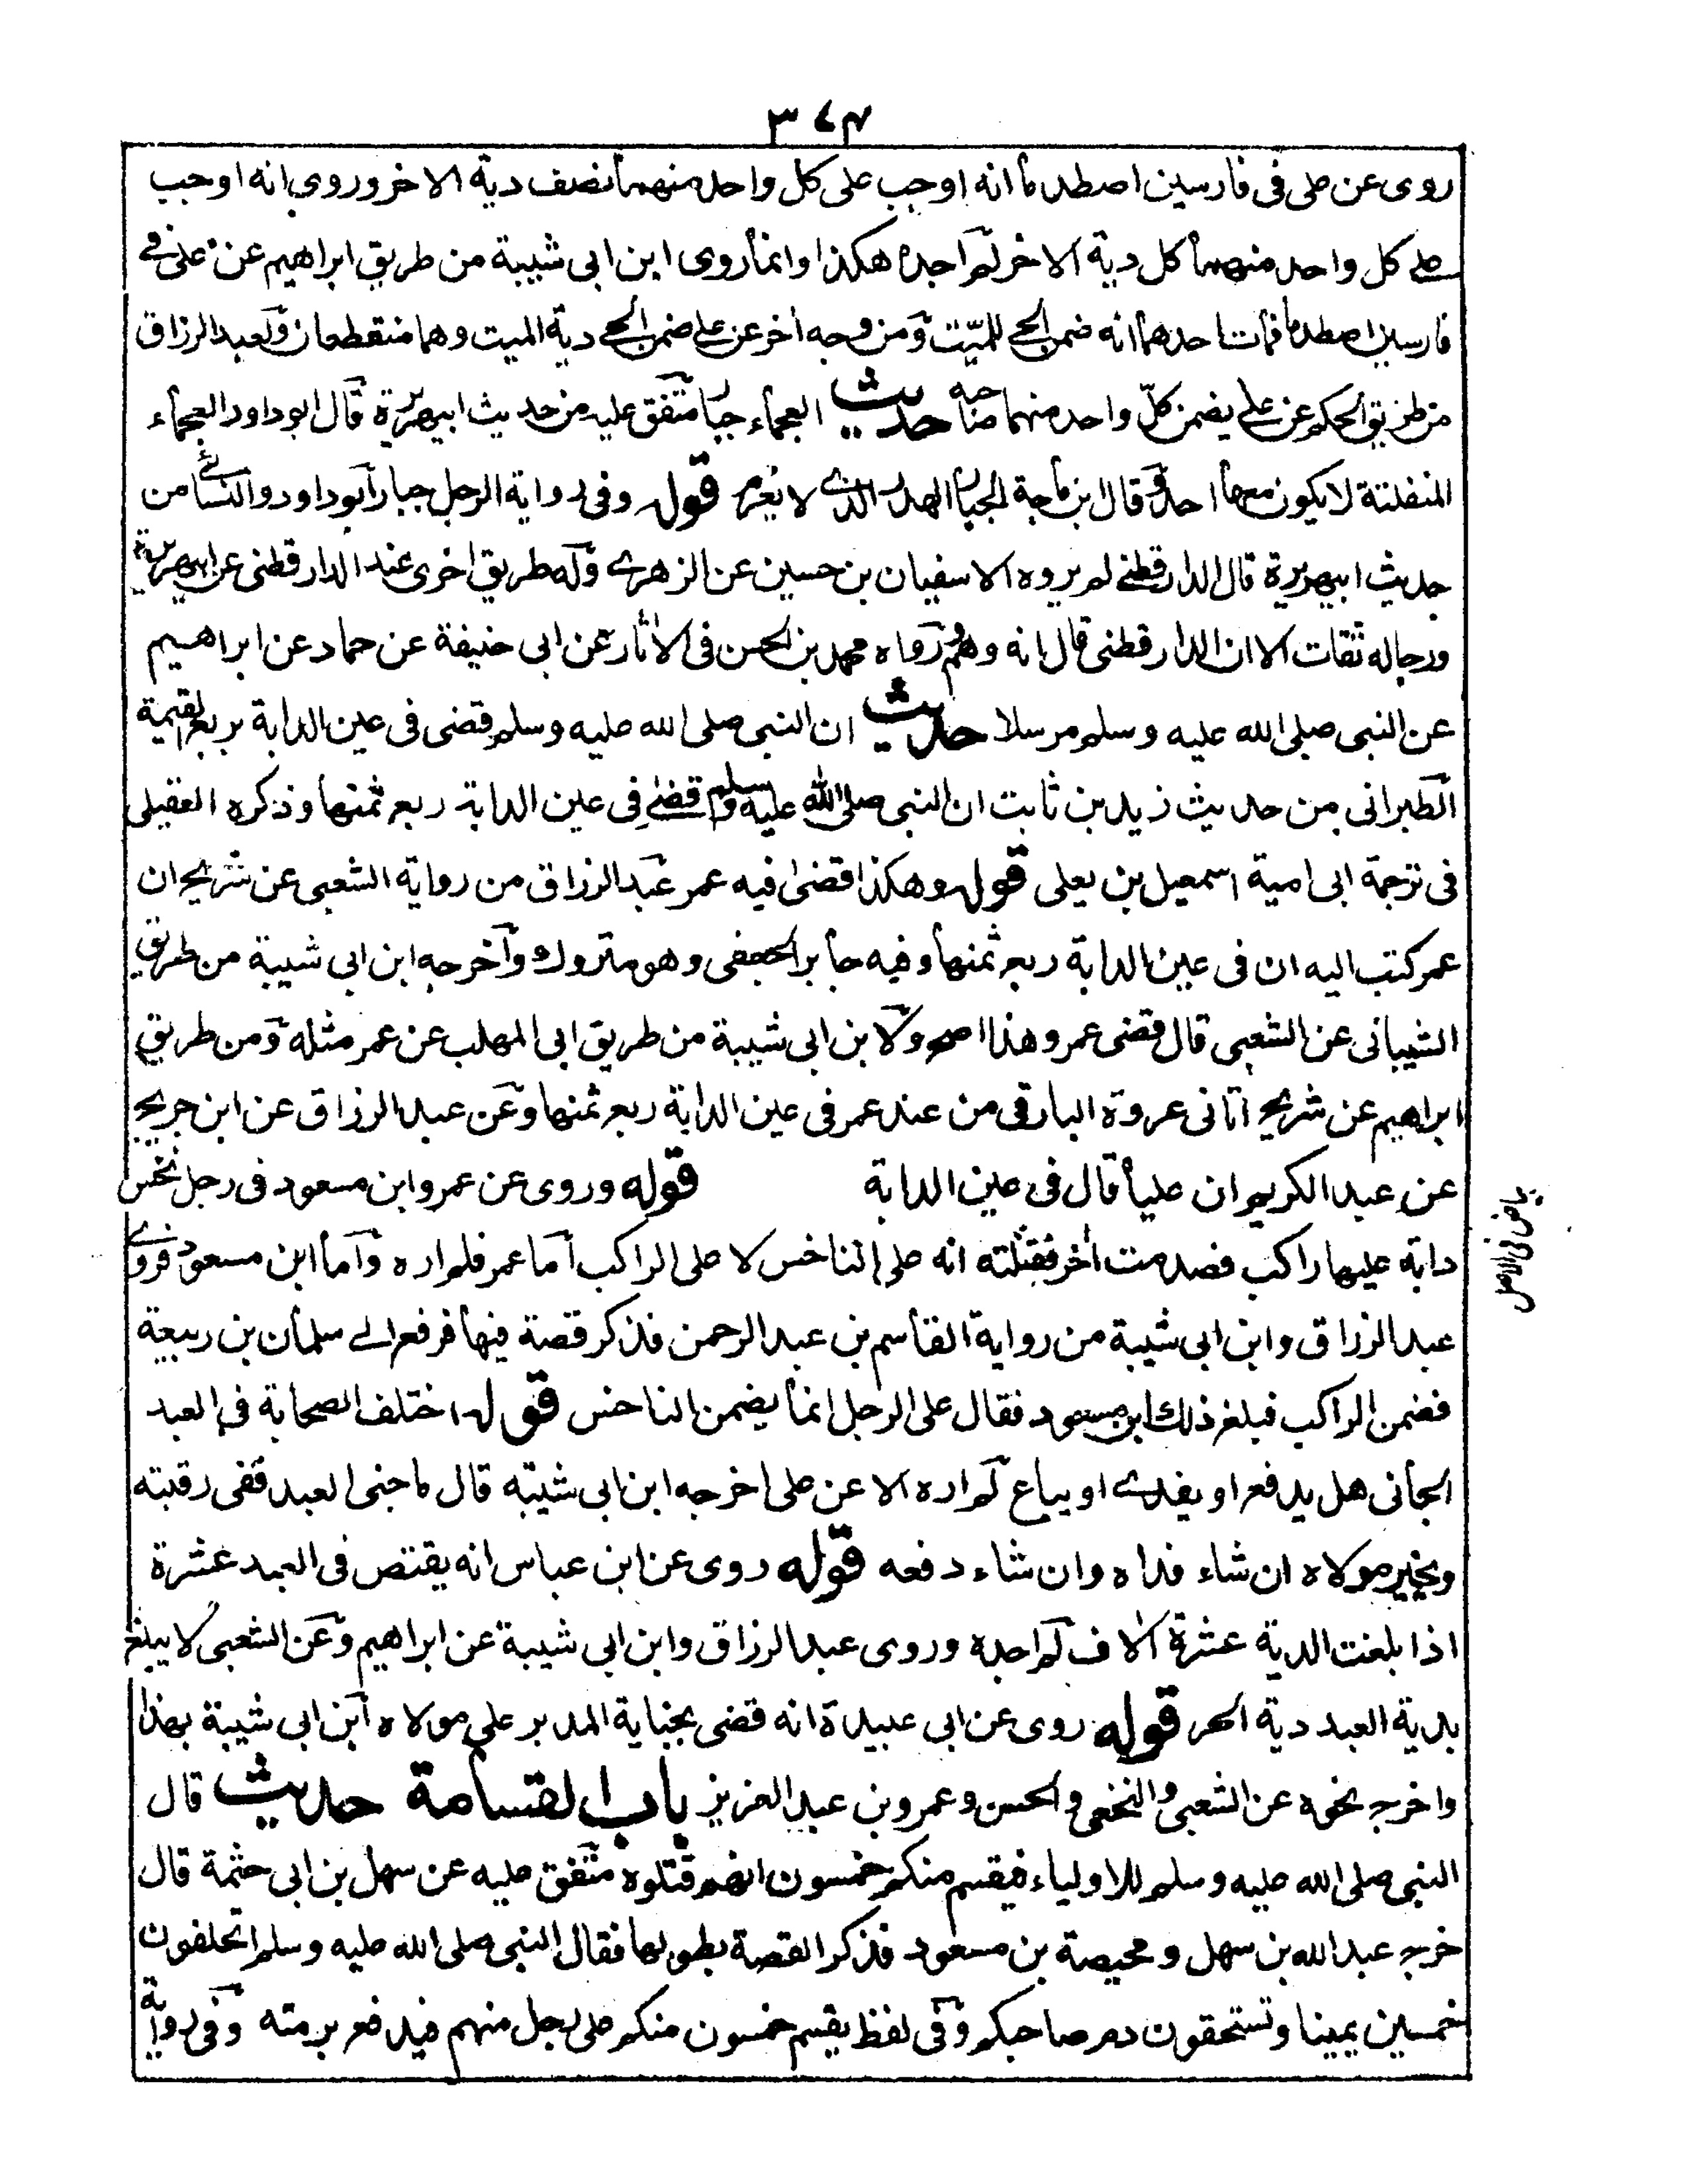 ٣٧٤
روى عن على فى فارسين اصطدما انه اوجب على كل واحد منهما نصف دية الاخر وروى انه اوجب
على كل واحد منهما كل دية الاخر لم اجده هكذا وانما روى ابن ابى شيبة من طريق ابراهيم عن على فى
فارسين اصطدما فمات احدهما انه ضمن الحى للميّت ومن وجه اخر عن على ضمن الحى دية الميت وهما منقطعان ولعبد الرزاق
من طريق الحكم عن على يضمن كلّ واحد منهما صاحبه حديث العجماء جبار متفق عليه من حديث ابيهريرة قال ابو داود العجماء
المنفلتة لا يكون معها احد وقال ابن ماجة الجبار الهدر الذى لا يغرم قوله وفى رواية الرجل جبار ابو داود والنسائى من
حديث ابيهريرة قال الدارقطنى لم يروه الا سفيان بن حسين عن الزهرى وله طريق اخرى عند الدارقطنى عن ابيهريرة
ورجاله ثقات الا ان الدارقطنى قال انه وهم ورواه محمد بن الحسن فى الاثار عن ابى حنيفة عن حماد عن ابراهيم
عن النبى صلى الله عليه وسلم مرسلا حديث ان النبى صلى الله عليه وسلم قضى فى عين الدابة بربع القيمة
الطبرانى من حديث زيد بن ثابت ان النبى صلى الله عليه وسلم قضى فى عين الدابة ربع ثمنها وذكره العقيلى
فى ترجمة ابى امية اسمعيل بن يعلى قوله وهكذا قضى فيه عمر عبد الرزاق من رواية الشعبى عن شريح ان
عمر كتب اليه ان فى عين الدابة ربع ثمنها وفيه جابر الجعفى وهو متروك واخرجه ابن ابى شيبة من طريق
الشيبانى عن الشعبى قال قضى عمر وهذا اصح ولابن ابى شيبة من طريق ابى المهلب عن عمر مثله ومن طريق
ابراهيم عن شريح اتانى عروة البارقى من عند عمر فى عين الدابة ربع ثمنها وعن عبد الرزاق عن ابن جريج
عن عبد الكريم ان عليا قال فى عين الدابة قوله وروى عن عمر وابن مسعود فى رجل نخس
بياض فى الاصل
دابة عليها راكب فصدمت اخر فقتلته انه على الناخس لا على الراكب اما عمر فلم اره واما ابن مسعود فروى
عبد الرزاق وابن ابى شيبة من رواية القاسم بن عبد الرحمن فذكر قصة فيها فرفع الى سلمان بن ربيعة
فضمن الراكب فبلغ ذلك ابن مسعود فقال على الرجل انما يضمن الناخس قوله اختلف الصحابة فى العبد
الجانى هل يدفع او يفدى او يباع لم اره الا عن على اخرجه ابن ابى شيبه قال ما جنى العبد ففى رقبته
ويخير مولاه ان شاء فداه وان شاء دفعه قوله روى عن ابن عباس انه يقتص فى العبد عشرة
اذا بلغت الدية عشرة الاف لم اجده وروى عبد الرزاق وابن ابى شيبة عن ابراهيم وعن الشعبى لا يبلغ
بدية العبد دية الحر قوله روى عن ابى عبيدة انه قضى بجناية المدبر على مولاه ابن ابى شيبة بهذا
واخرج نحوه عن الشعبى والنخعى والحسن وعمر وبن عبد العزيز باب القسامة حديث قال
النبى صلى الله عليه وسلم للاولياء فيقسم منكم خمسون انهم قتلوه متفق عليه عن سهل بن ابى حثمة قال
خرج عبد الله بن سهل ومحيصة بن مسعود فذكر القصة بطولها فقال النبى صلى الله عليه وسلم اتحلفون
خمسين يمينا وتستحقون دم صاحبكم وفى لفظ يقسم خمسون منكم على رجل منهم فيدفع برمته وفى رواية